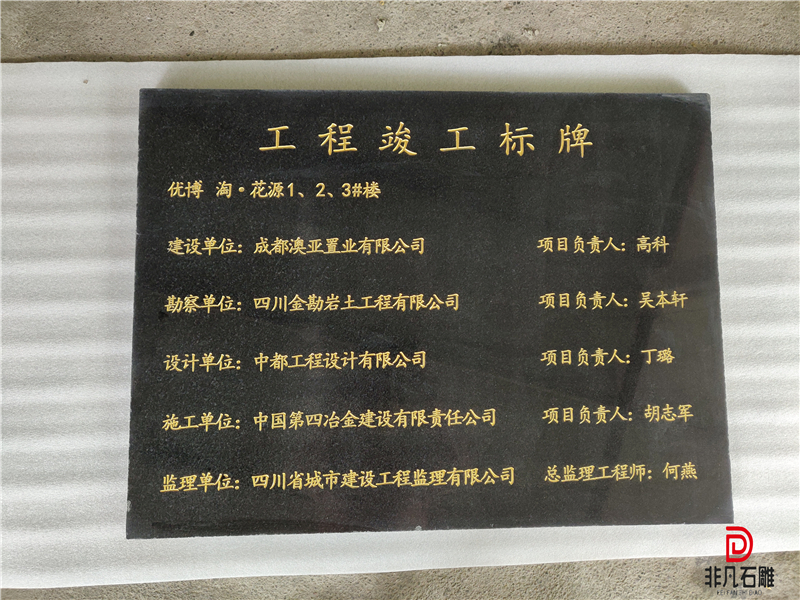 工程竣工标牌
优博 淘·花源1、2、3#楼
建设单位：成都澳亚置业有限公司 项目负责人：高科
勘察单位：四川金勘岩土工程有限公司 项目负责人：吴本轩
设计单位：中都工程设计有限公司 项目负责人：丁璐
施工单位：中国第四冶金建设有限责任公司 项目负责人：胡志军
监理单位：四川省城市建设工程监理有限公司 总监理工程师：何燕
非凡石雕